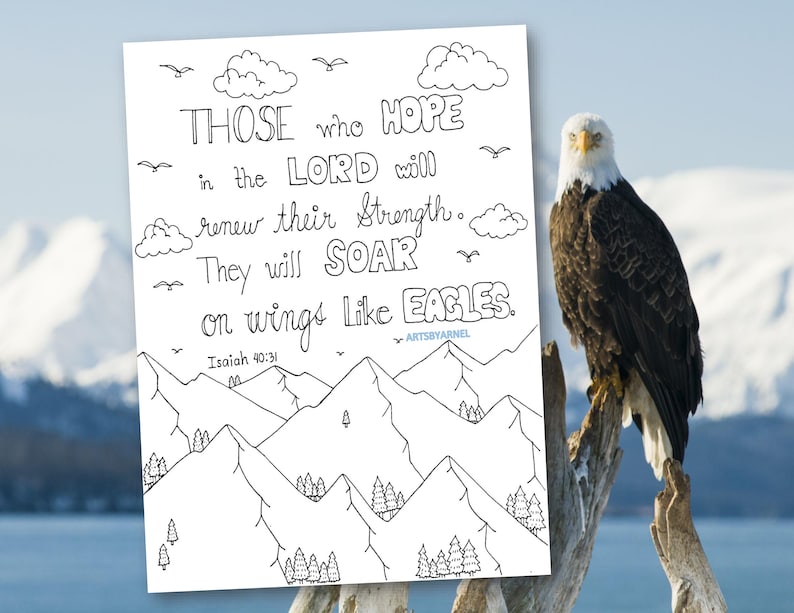 THOSE who HOPE
in the LORD will
renew their Strength.
They will SOAR
on wings like EAGLES.
ARTSBYARNEL
Isaiah 40:31